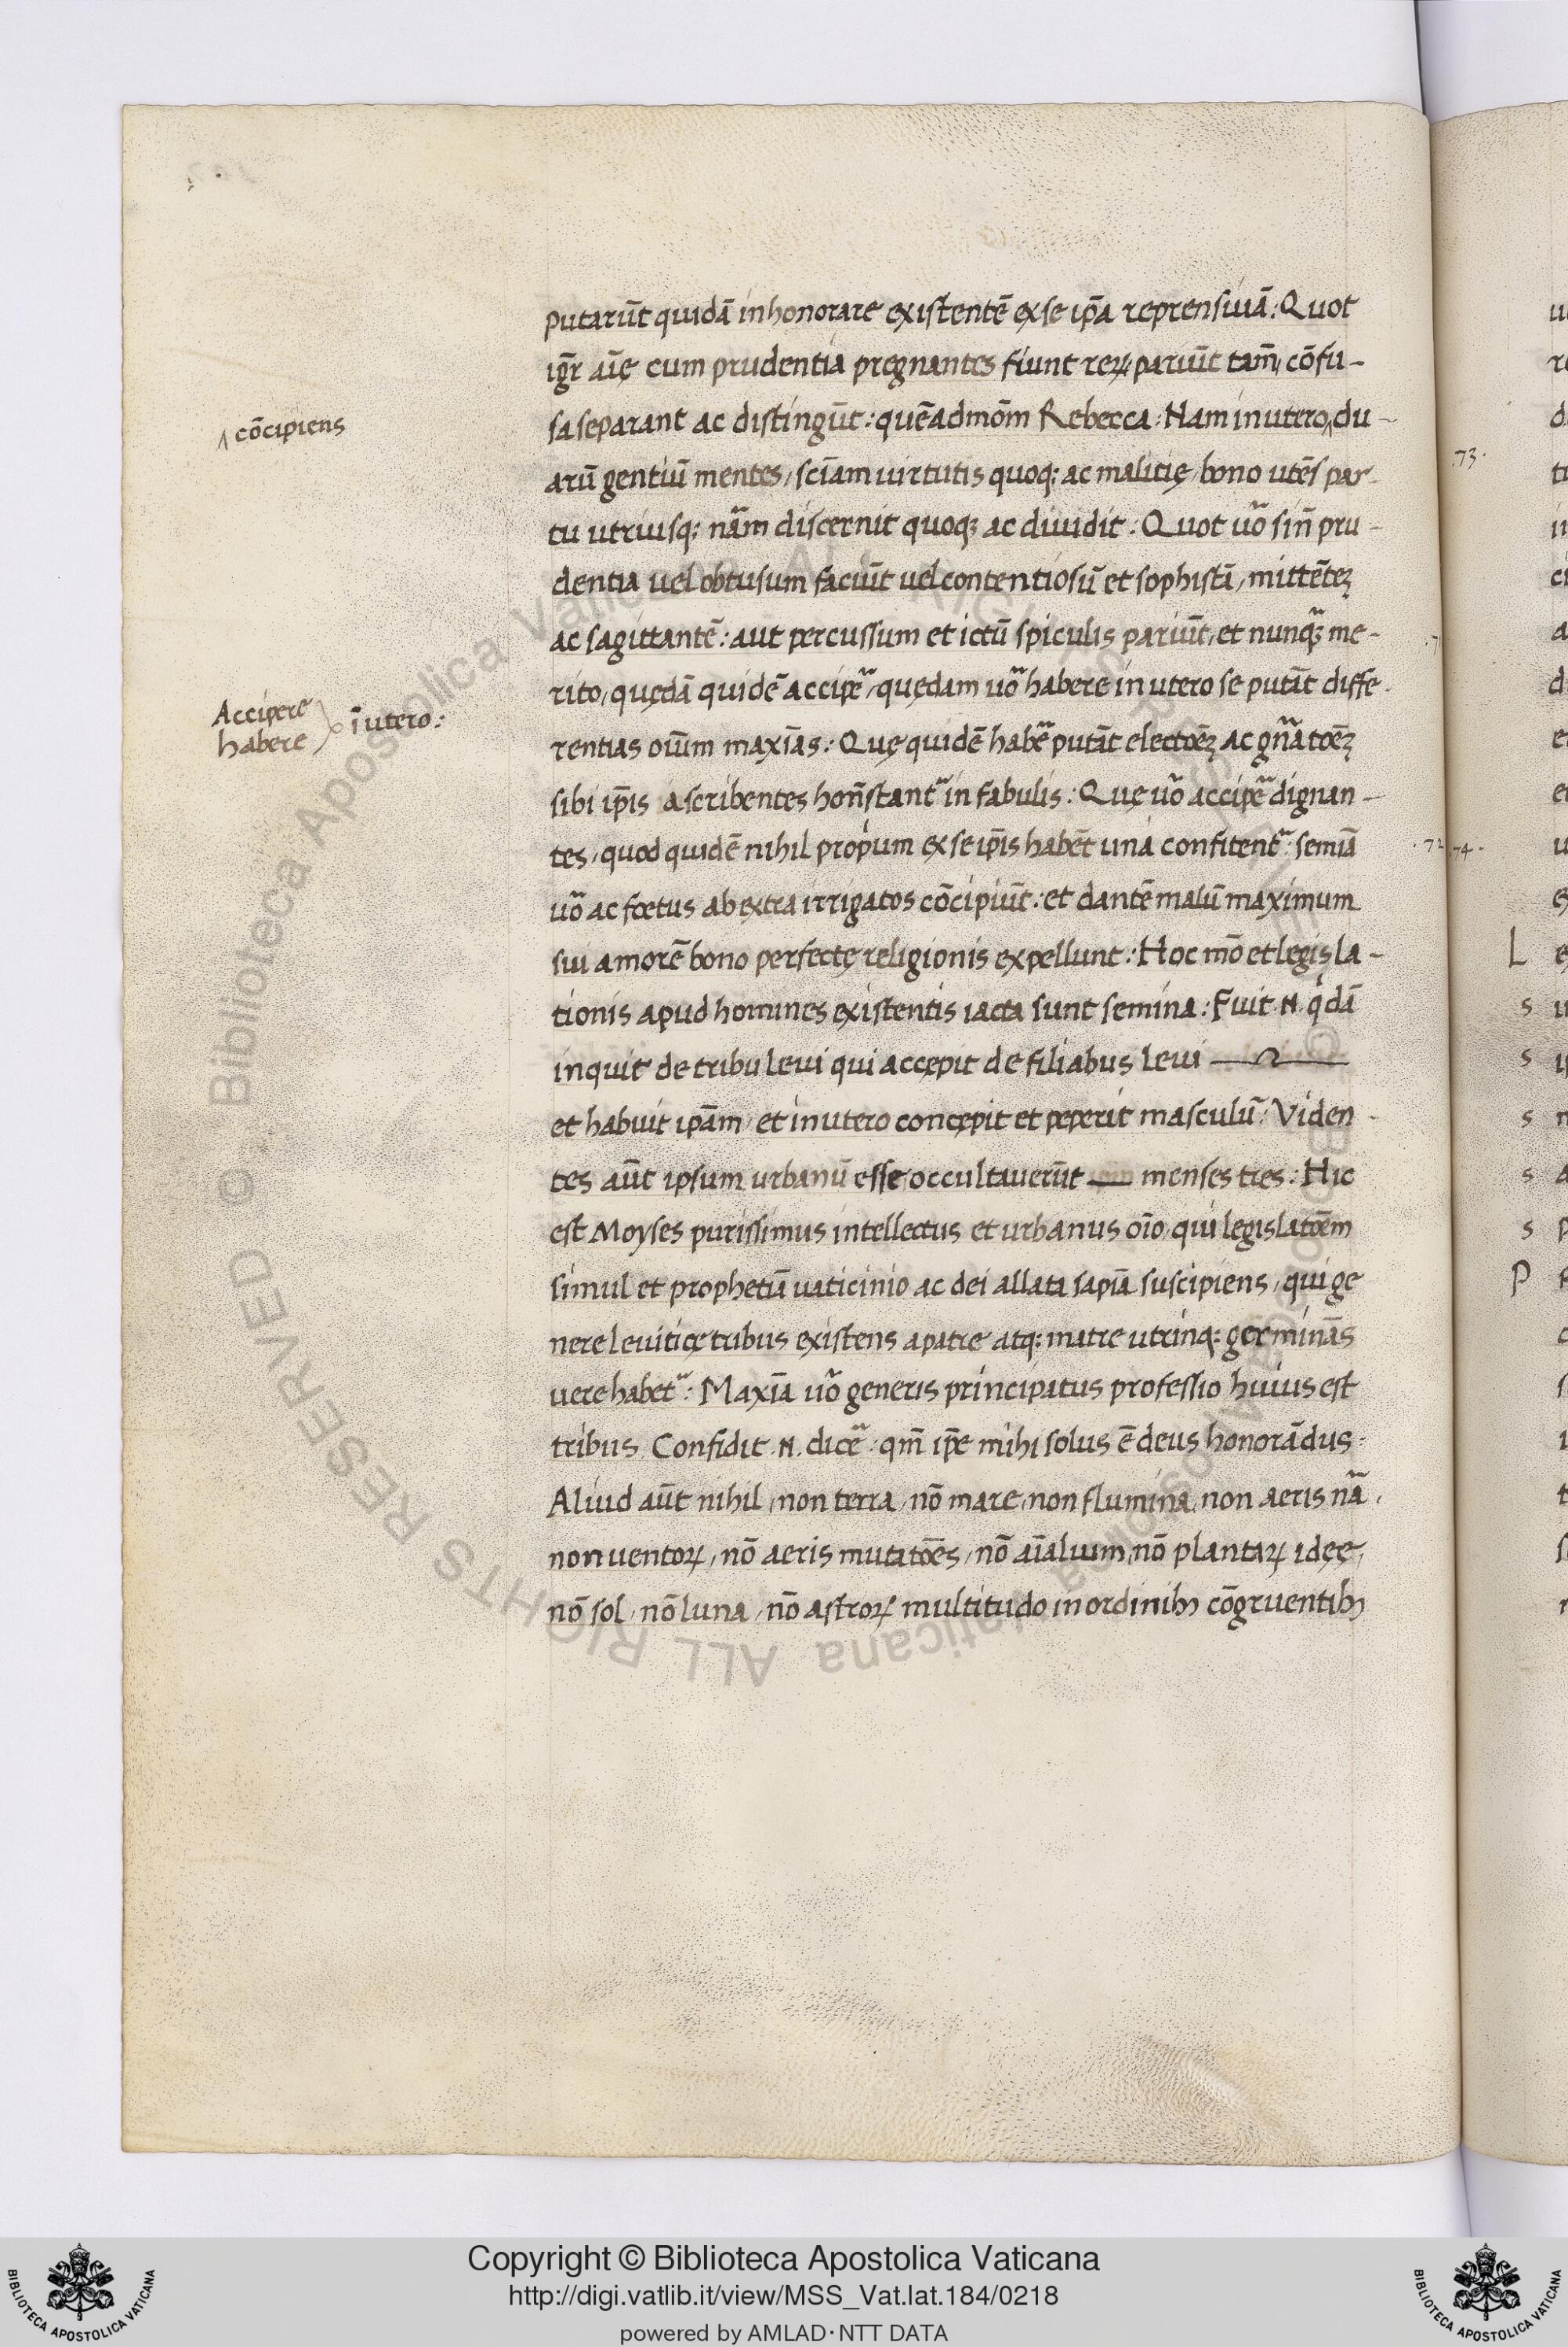 putarūt quidā inhonorare existentē ex se ip̄a reprensiuiā: Quot
igr̄ aīę cum prudentia pregnantes fiunt reꝝ pariūt tam̄, cōfu-
sa separant ac distingūt: quēadmōm Rebecca: Nam in utero ‸ du-
‸ cōcipiens
arū gentiū mentes, sciām uirtutis quoq; ac malitię, bono utēs par-
tu utriusq; nām discernit quoq; ac diuidit: Quot uō sin̄ pru-
dentia uel obtusum faciūt uel contentiosū et sophistā, mittētez
ac sagittantē: aut percussum et ictū spiculis pariūt, et nunq̄ me-
rito, quędā quidē accipe͂, quędam uō habere in utero se putāt diffe-
Accipere
habere
ī utero:
rentias oīum maxīas: Quę quidē habe͂ putāt electoēz ac gn̄atoēz
sibi ip̄is ascribentes hon̄stant͂ in fabulis: Quę uō accipe͂ dignan-
tes, quod quidē nihil propium ex se ip̄is habēt una confitent͂: semīa
uō ac fœtus ab extra irrigatos cōcipiūt: et dantē malū maximum
sui amorē bono perfectę religionis expellunt: Hoc mō et legisla-
tionis apud homines existentis iacta sunt semina: Fuit .N. qdā
inquit de tribu leui qui accępit de filiabus leui
et habuit ipām, et in utero concępit et peperit masculū: Viden-
tes aūt ipsum urbanū esse occultauerūt menses tres: Hic
est Moyses purissimus intellectus et urbanus oīo, qui legislatoēm
simul et prophetiā uaticinio ac dei allata sapīa suscipiens, qui ge
nere leuiticę tribus existens a patre atq; matre utrinq; germinās
uere habet͂: Maxīa uō generis principatus professio huius est
tribus. Confidit .N. dice͂: qm̄ ip̄e mihi solus ē deus honorādus:
Aliud aūt nihil, non terra, nō mare, non flumina, non aeris nā,
non uentoꝝ, nō aeris mutatoēs, nō aīalium, nō plantaꝝ idęę,
nō sol, nō luna, nō astroꝝ multitudo in ordinibꝫ cōgruentibꝫ
.73.
.72
.74.
L
s
s
s
s
s
P
Copyright © Biblioteca Apostolica Vaticana
http://digi.vatlib.it/view/MSS_Vat.lat.184/0218
powered by AMLAD·NTT DATA
BIBLIOTECA APOSTOLICA VATICANA
BIBLIOTECA APOSTOLICA VATICANA